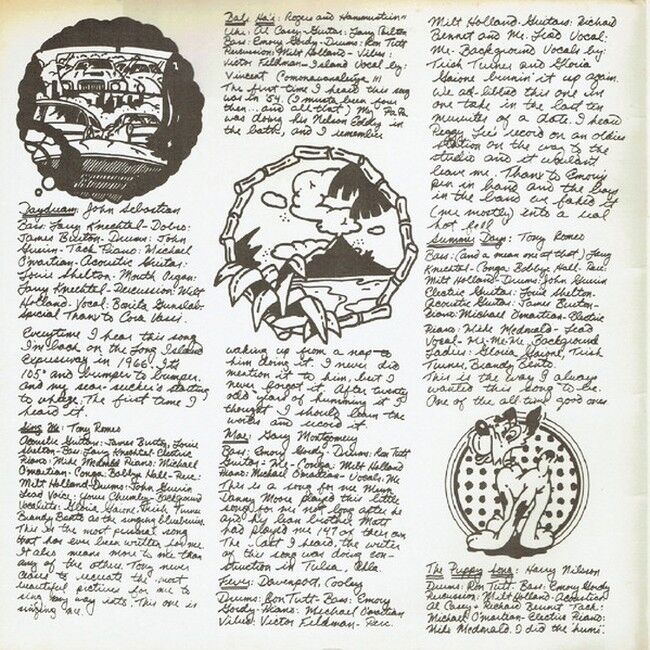 Daydream: John Sebastian
Bass: Larry Knechtel - Dobro:
James Burton - Drums: John
Guerin - Tack Piano: Michael
O'martian - Acoustic Guitar:
Louie Shelton - Mouth Organ:
Larry Knechtel - Percussion: Milt
Holland - Vocal:
Special Thanks to Cora
Everytime I hear this song
I'm back on the Long Island
Expressway in 1966. Its
105° and bumper to bumper,
and my sear-sucker's starting
to The first time I
heard it.
Sing Me: Tony Romeo
Acoustic Guitars: James Burton, Louie
Shelton - Bass: Larry Knechtel - Electric
Piano: Mike Mcdonald Piano: Michael
O'martian - Conga: Bobbye Hall - Perc:
Milt Holland - Drums: John Guerin
Lead Voice: Yours Chumley - Background
Vocalists: Gloria Trish Turner
Brandy as the singing bluebirds.
This is the most personal song
that has ever been written for me.
It also means more to me than
any of the others. Tony never
ceases to recreate the most
beautiful pictures for me to
sing my way into. This one is
singing me.
Bali Ha'i: Rogers and Hammerstein
Al Casey - Guitar: Larry
Bass: Emory Gordy - Drums: Ron Tutt
Percussion: Milt Holland - Vibes:
Victor Feldman - Island Vocal by:
Vincent
The first time I heard this song
was in '54. (I musta been four
then... and all that) My Pa Pa
was down his Nelson Eddy in
the bath, and I remember
waking up from a nap to
him doing it. I never did
mention it to him, but I
never forgot it. After twenty
odd years of humming it I
thought I should learn the
words and record it.
Mae: Gary Montgomery
Bass: Emory Gordy - Drums: Ron Tutt
Guitar - Me - Conga: Milt Holland
Piano: Michael O'martian - Vocals: Me
This is a song for me Mum.
Danny Moore played this little
song for me not long after he
and his lean brother Matt
had played me 147 of their own
The last I heard, the writer
of this song was doing con-
struction in Tulsa, Okla.
Fever: Davenport, Cooley
Drums: Ron Tutt - Bass: Emory
Gordy - Piano: Michael O'martian
Vibes: Victor Feldman - Perc:
Milt Holland - Guitars: Richard
Bennet and Me. Lead Vocal:
Me - Background Vocals by:
Trish Turner and Gloria
burnin' it up again.
We ad-libbed this one in
one take in the last ten
minutes of a date. I heard
Peggy Lee's record on an oldies
station on the way to the
studio and it wouldn't
leave me. Thanx to Emory's
pen in hand and the boys
in the band we faked it
(me mostly) into a real
hot
Summer Days: Tony Romeo
Bass: (and a mean one at that) Larry
Knechtel - Conga: Bobbye Hall - Perc:
Milt Holland - Drums: John Guerin
Electric Guitar: Louie Shelton -
Acoustic Guitar: James Burton -
Piano: Michael O'martian - Electric
Piano: Mike Mcdonald - Lead
Vocal - Me-Me-Me, Background
Ladies: Gloria Trish
Turner, Brandy
This is the way I always
wanted this song to be.
One of the all time good ones
The Puppy Song: Harry Nilsson
Drums: Ron Tutt - Bass: Emory Gordy
Percussion: Milt Holland - Acoustics:
Al Casey + Richard Bennet Tack:
Michael O'martian - Electric Piano:
Mike Mcdonald. I did the hums.